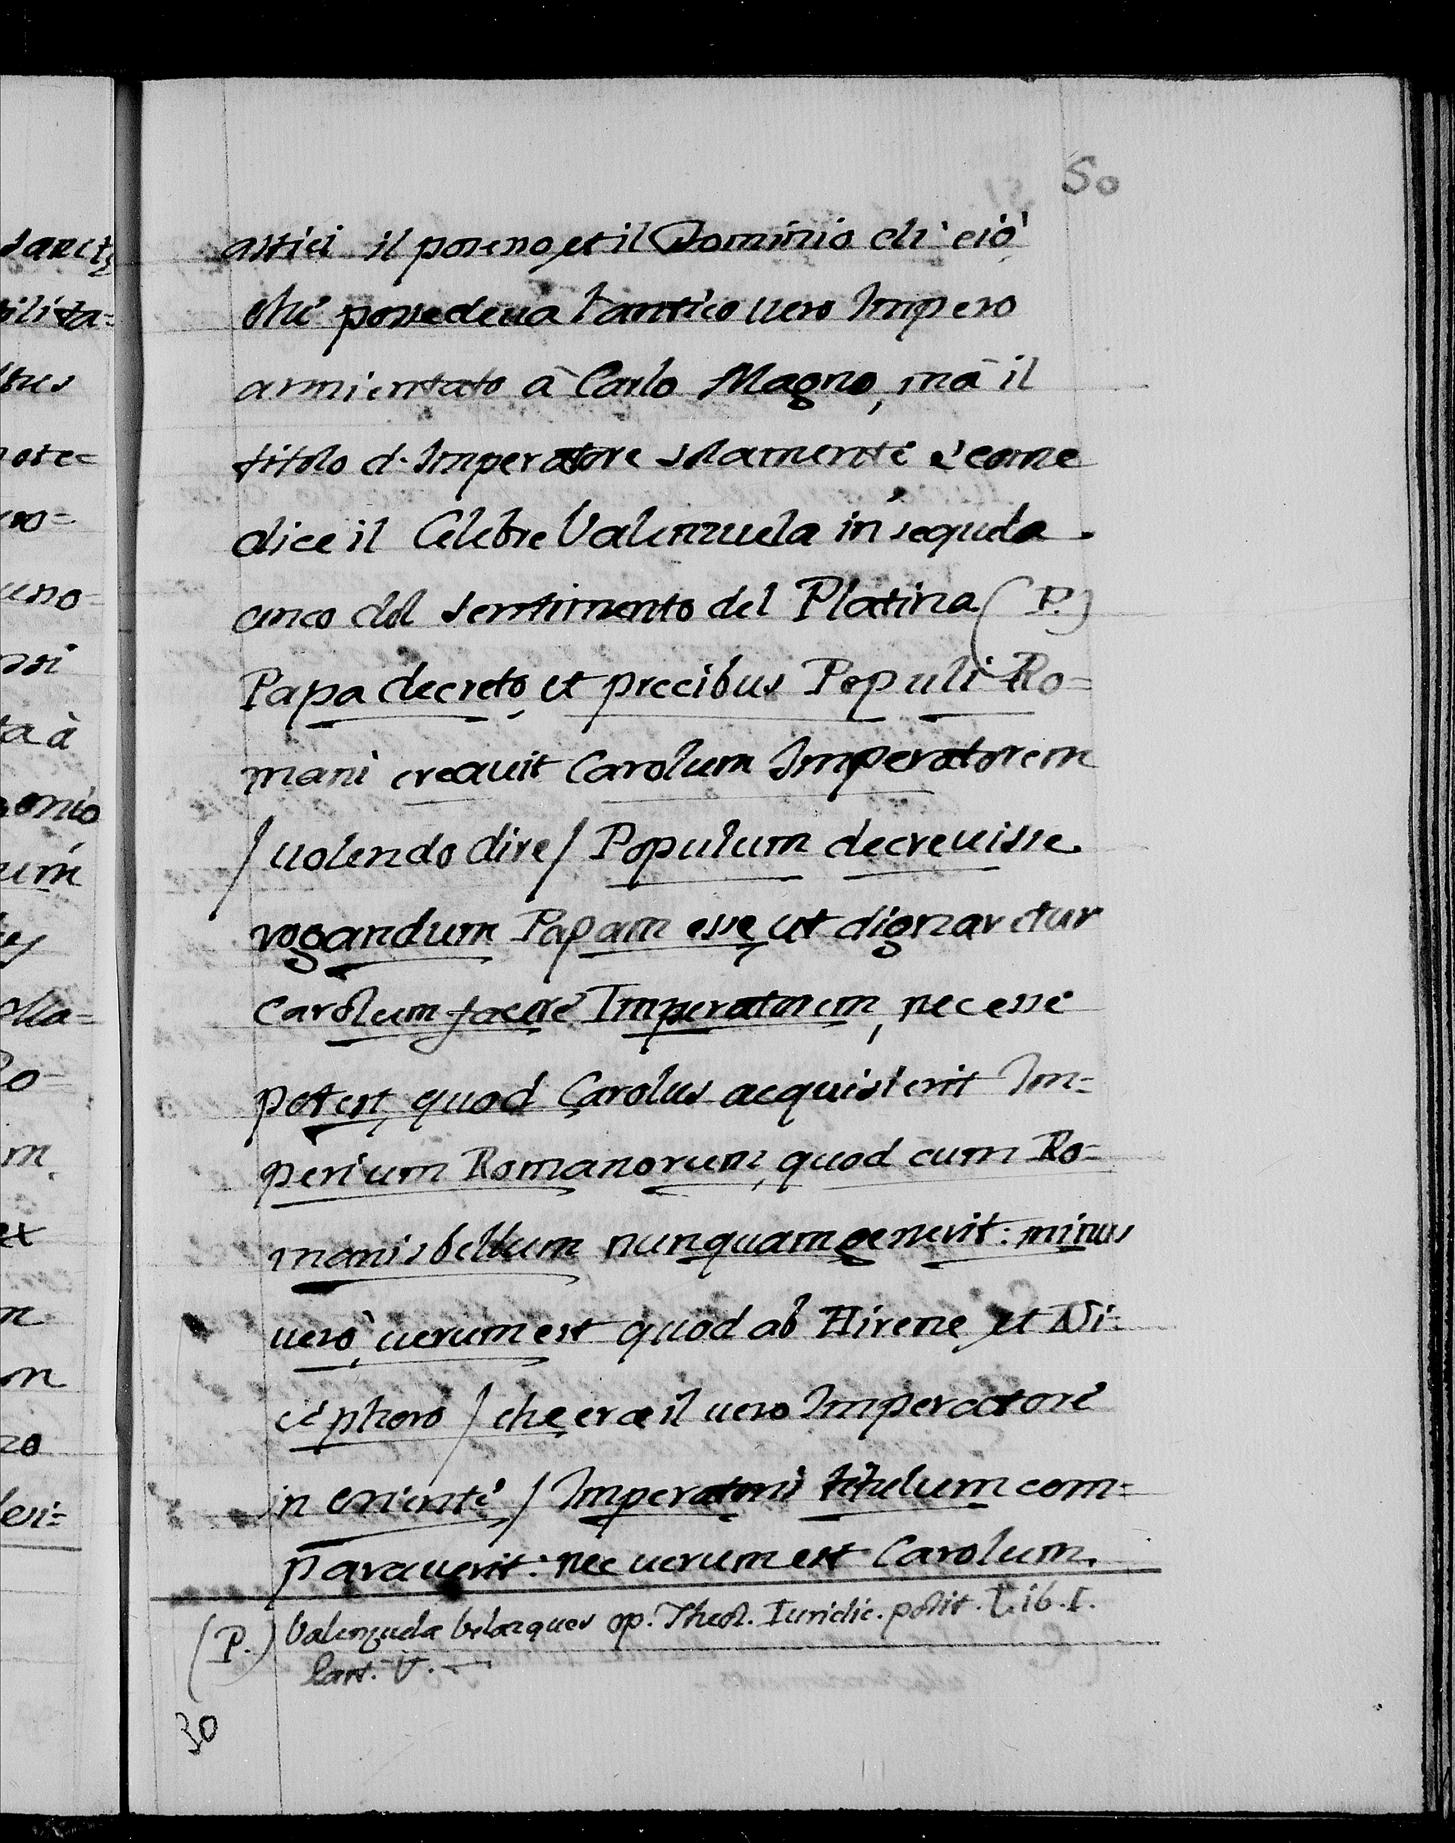 50
il et il Dominio di ciò
che possedeua l'antico uero Impero
à Carlo Magno, mà il
titolo d'Imperatore solamente è come
dice il Celebre Valenzuela in sequela
anco del sentimento del Platina (P.)
Papa decreto, et precibus Populi Ro=
mani creauit Carolum Imperatorem
/uolendo dire/ Populum decreuisse
rogandum Papam esse, ut dignaretur
Carolum facere Imperatorem, nec esse
potest, quod Carolus acquisierit Im=
perium Romanorum, quod cum Ro=
manis bellum nunquam gesserit: minus
uerò uerum est quod ab Hirene, et Ni=
cephoro / che era il uero Imperatore
in oriente / Imperatoris titulum com=
parauerit: nec uerum est Carolum.
(P.) Valenzuela Velazques op. Theol. Iuridic. polit. Lib. I.
Part. V.
30